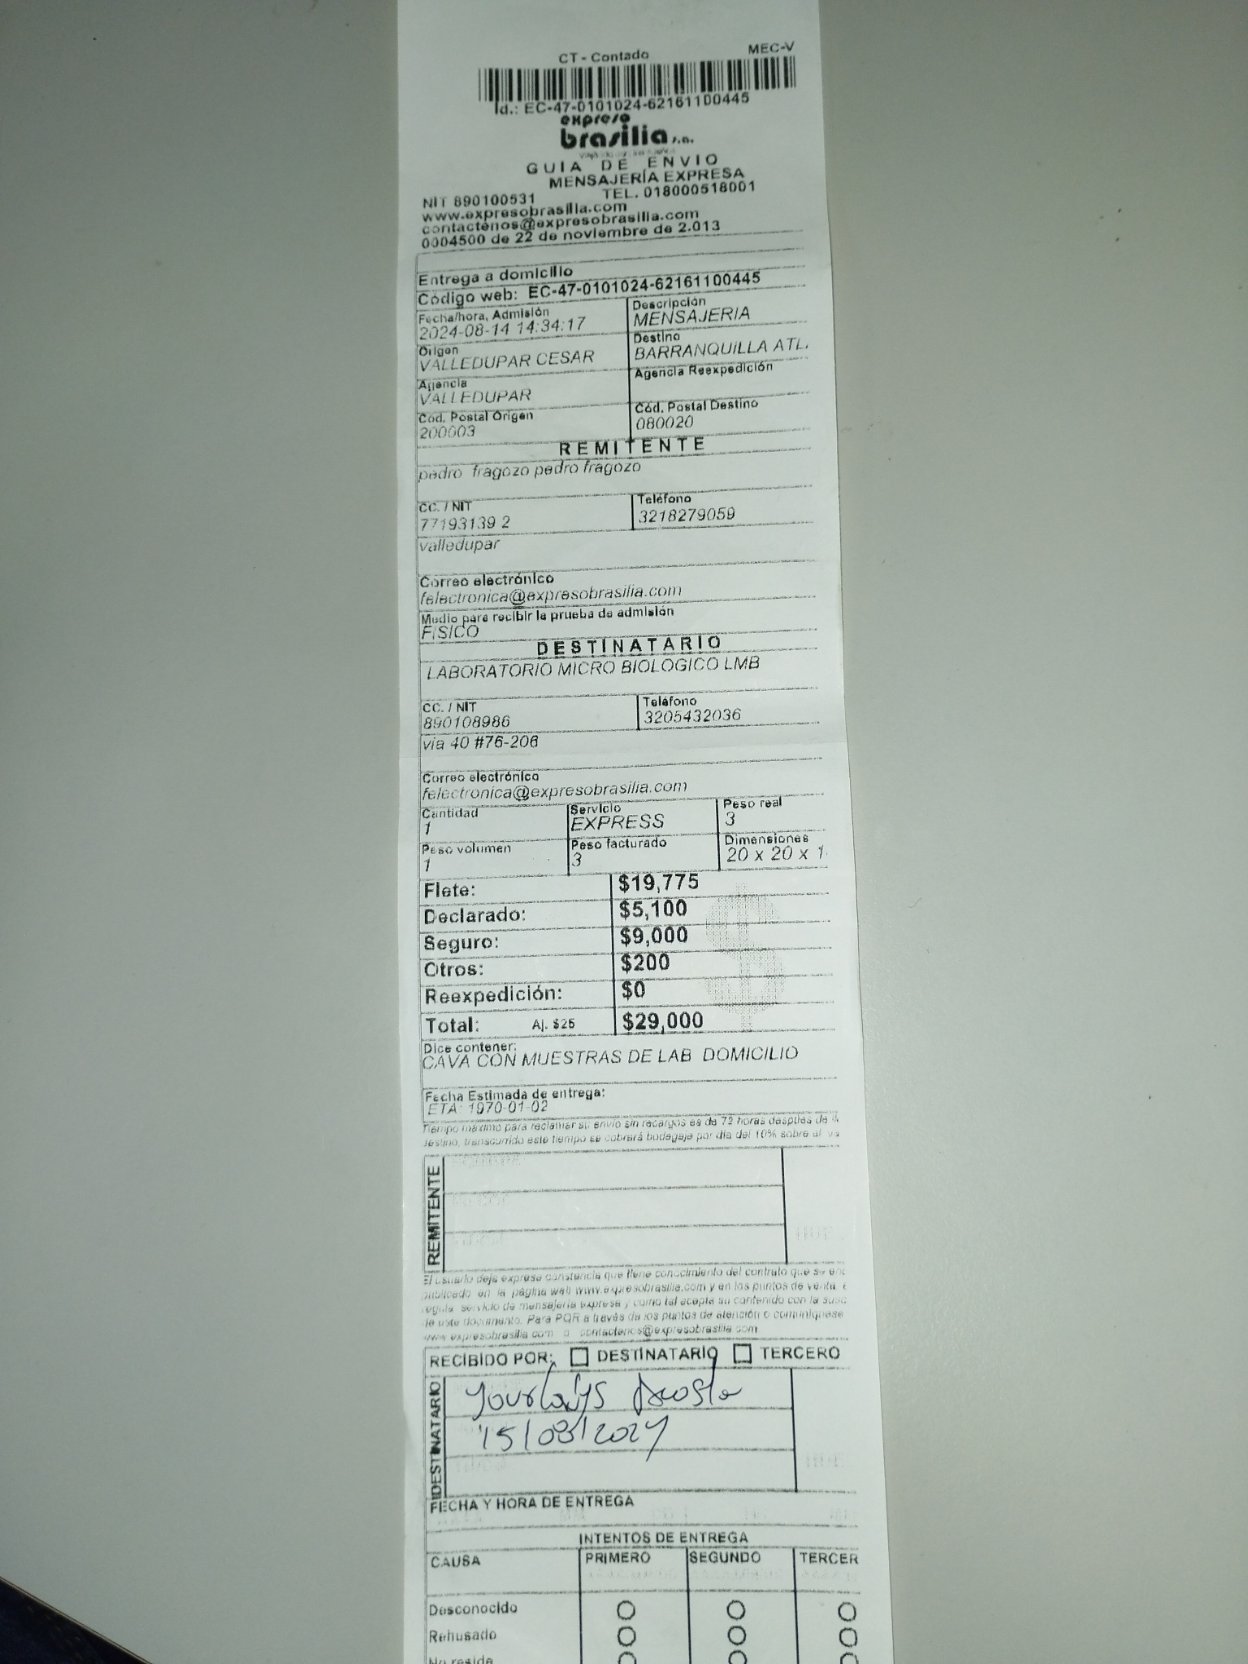 CT - Contado MEC-V
Id.: EC-47-0101024-62161100445
expreso
brasilia s.a.
GUIA DE ENVIO
MENSAJERÍA EXPRESA
NIT 890100531 TEL. 018000518001
www.expresobrasilia.com
contactenos@expresobrasilia.com
0004500 de 22 de noviembre de 2.013
Entrega a domicilio
Código web: EC-47-0101024-62161100445
Fecha/hora, Admisión Descripción
2024-08-14 14:34:17 MENSAJERIA
Origen Destino
VALLEDUPAR CESAR BARRANQUILLA ATL.
Agencia Agencia Reexpedición
VALLEDUPAR
Cod. Postal Origen Cód. Postal Destino
200003 080020
REMITENTE
pedro fragozo pedro fragozo
CC. / NIT Teléfono
77193139 2 3218279059
valledupar
Correo electrónico
felectronica@expresobrasilia.com
Medio para recibir la prueba de admisión
FISICO
DESTINATARIO
LABORATORIO MICRO BIOLOGICO LMB
CC. / NIT Teléfono
890108986 3205432036
via 40 #76-206
Correo electrónico
felectronica@expresobrasilia.com
Cantidad Servicio Peso real
1 EXPRESS 3
Peso volumen Peso facturado Dimensiones
1 3 20 x 20 x 1
Flete: $19,775
Declarado: $5,100
Seguro: $9,000
Otros: $200
Reexpedición: $0
Total: Aj. $25 $29,000
Dice contener:
CAVA CON MUESTRAS DE LAB DOMICILIO
Fecha Estimada de entrega:
ETA: 1970-01-02
Tiempo máximo para reclamar su envío sin recargos es de 72 horas después de
destino, transcurrido este tiempo se cobrará bodegaje por día del 10% sobre el
REMITENTE
El usuario deja expresa constancia que tiene conocimiento del contrato que se
publicado en la página web www.expresobrasilia.com y en los puntos de venta,
regula servicio de mensajería expresa y como tal acepta su contenido con la
de este documento. Para PQR a través de los puntos de atención o comuníquese
www.expresobrasilia.com o contactenos@expresobrasilia.com
RECIBIDO POR: DESTINATARIO TERCERO
DESTINATARIO
Yourladys Acosta
15/08/2024
FECHA Y HORA DE ENTREGA
INTENTOS DE ENTREGA
CAUSA PRIMERO SEGUNDO TERCER
Desconocido
Rehusado
No reside